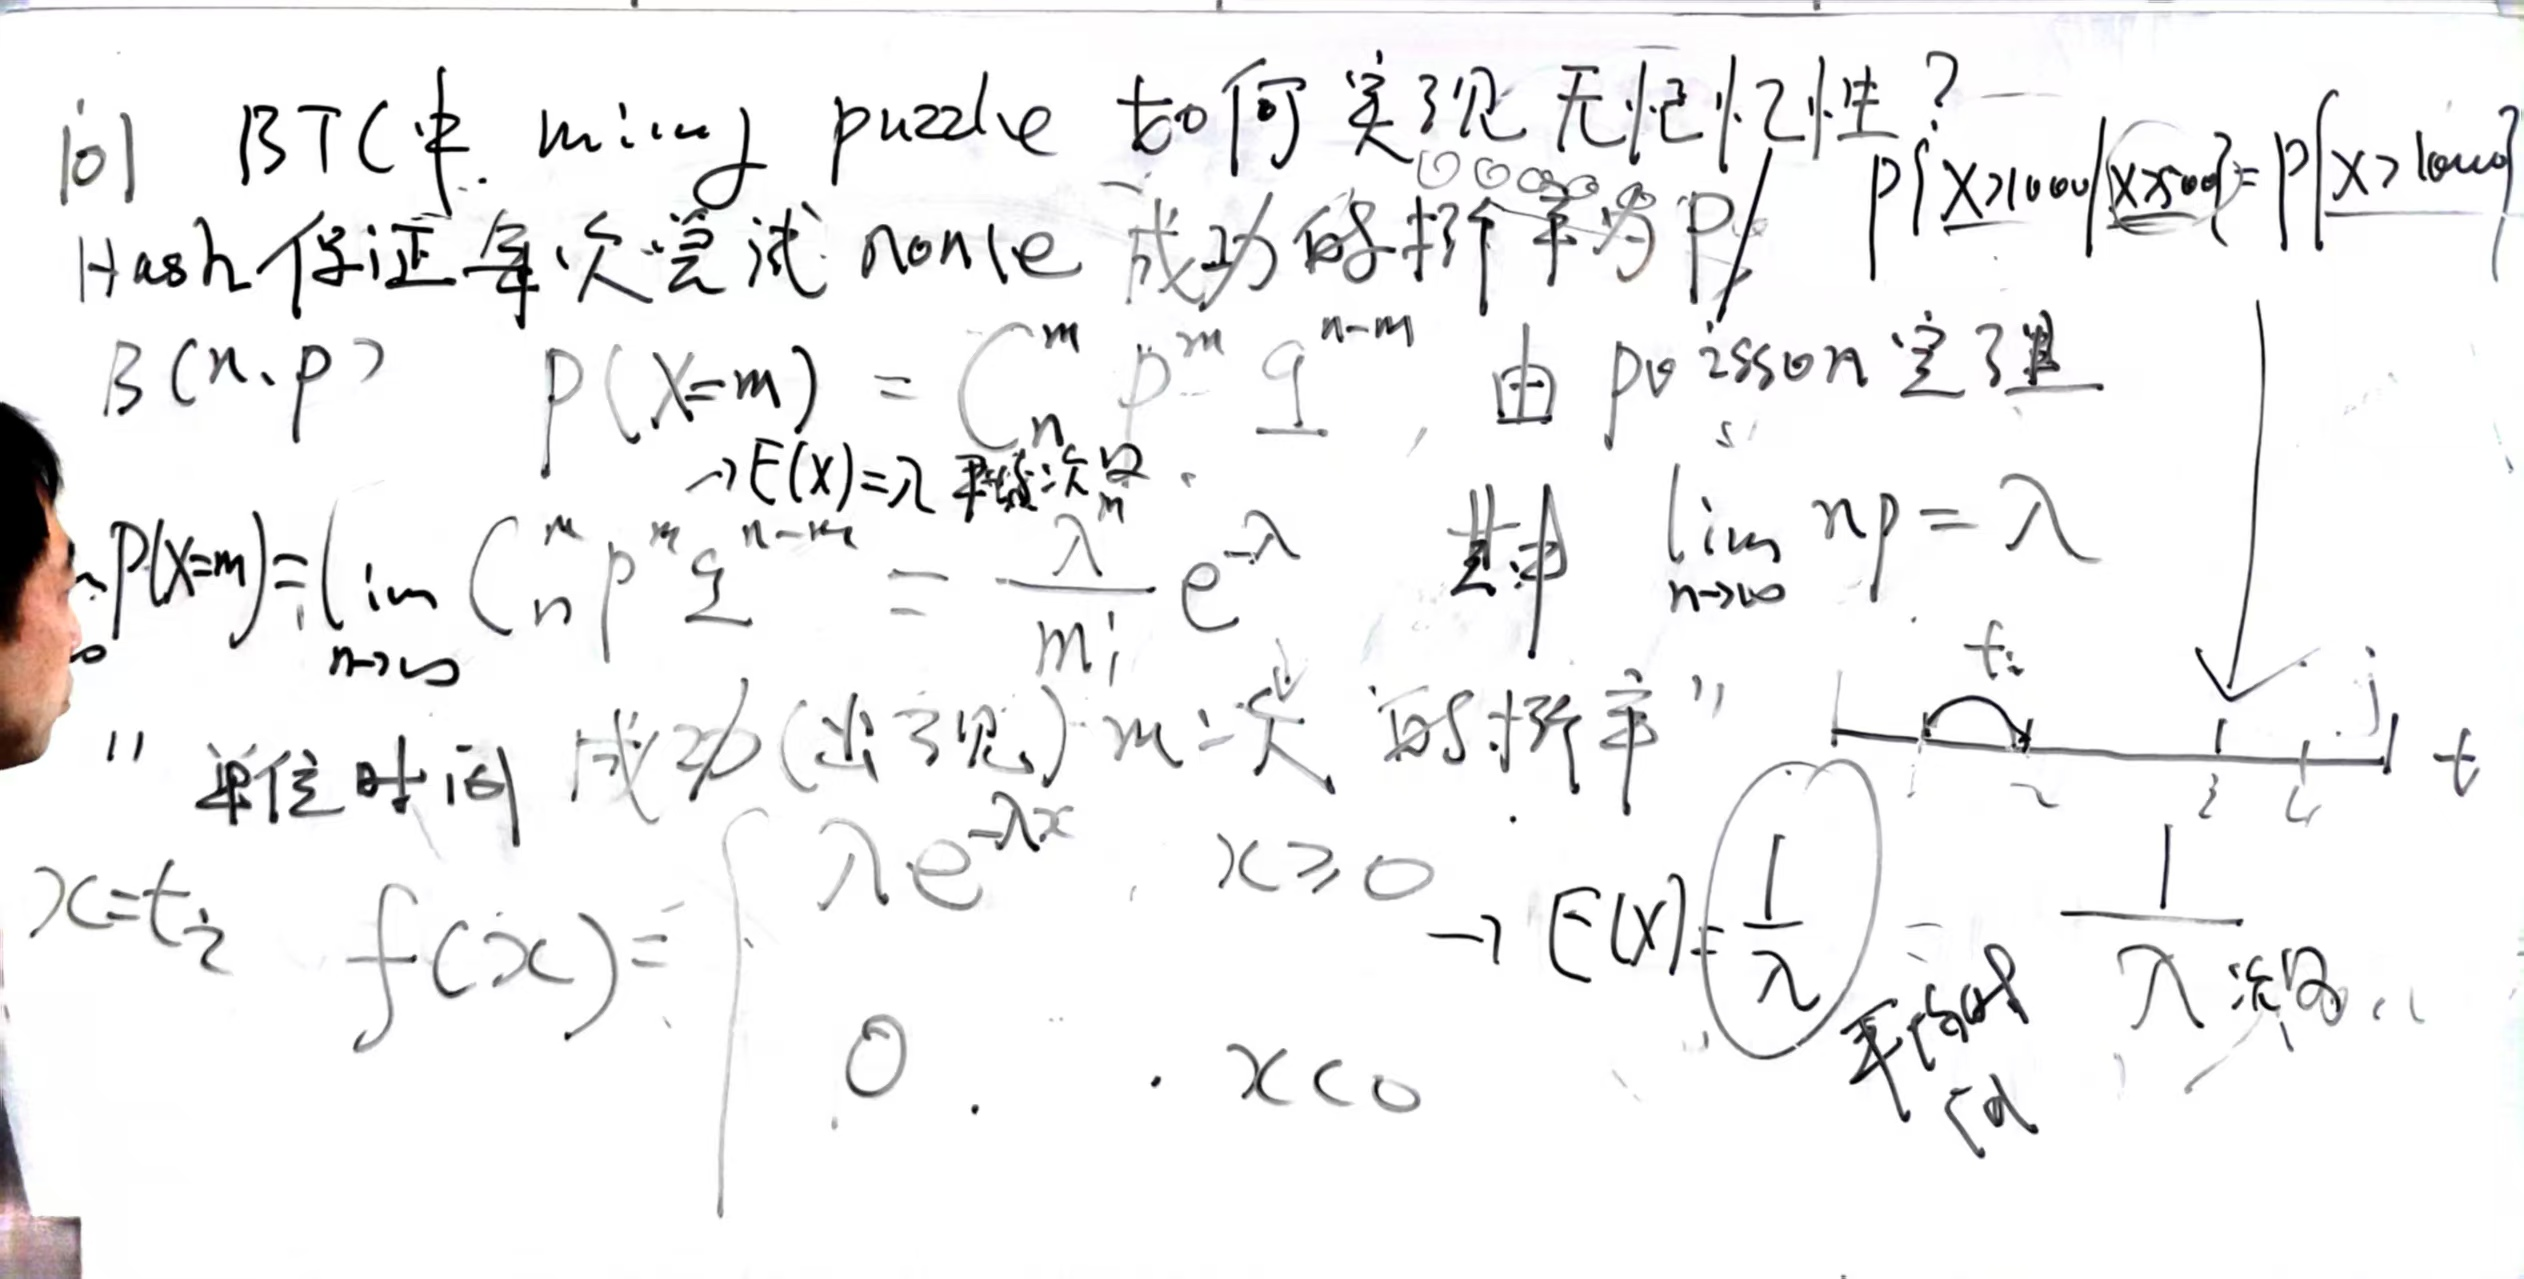 问 BTC中 mining puzzle 如何实现无记忆性?
P{X>1000|X>500}=P{X>1000}
Hash保证每次尝试nonce成功的概率为P
00000
B(n、p) P(X=m) = C_n^m p^m q^{n-m}, 由poisson定理
→E(X)=λ 平均次数
P(X=m)=lim_{n→∞} C_n^m p^m q^{n-m} = \frac{λ^m}{m!} e^{-λ} 其中 lim_{n→∞} np=λ
"单位时间 成功(出现) m次 的概率"
t_i
1 2 3 4 t
x=t_i f(x)={ λe^{-λx}, x≥0
0. x<0
→E(X)=\frac{1}{λ} = \frac{1}{λ次数}
平均时间